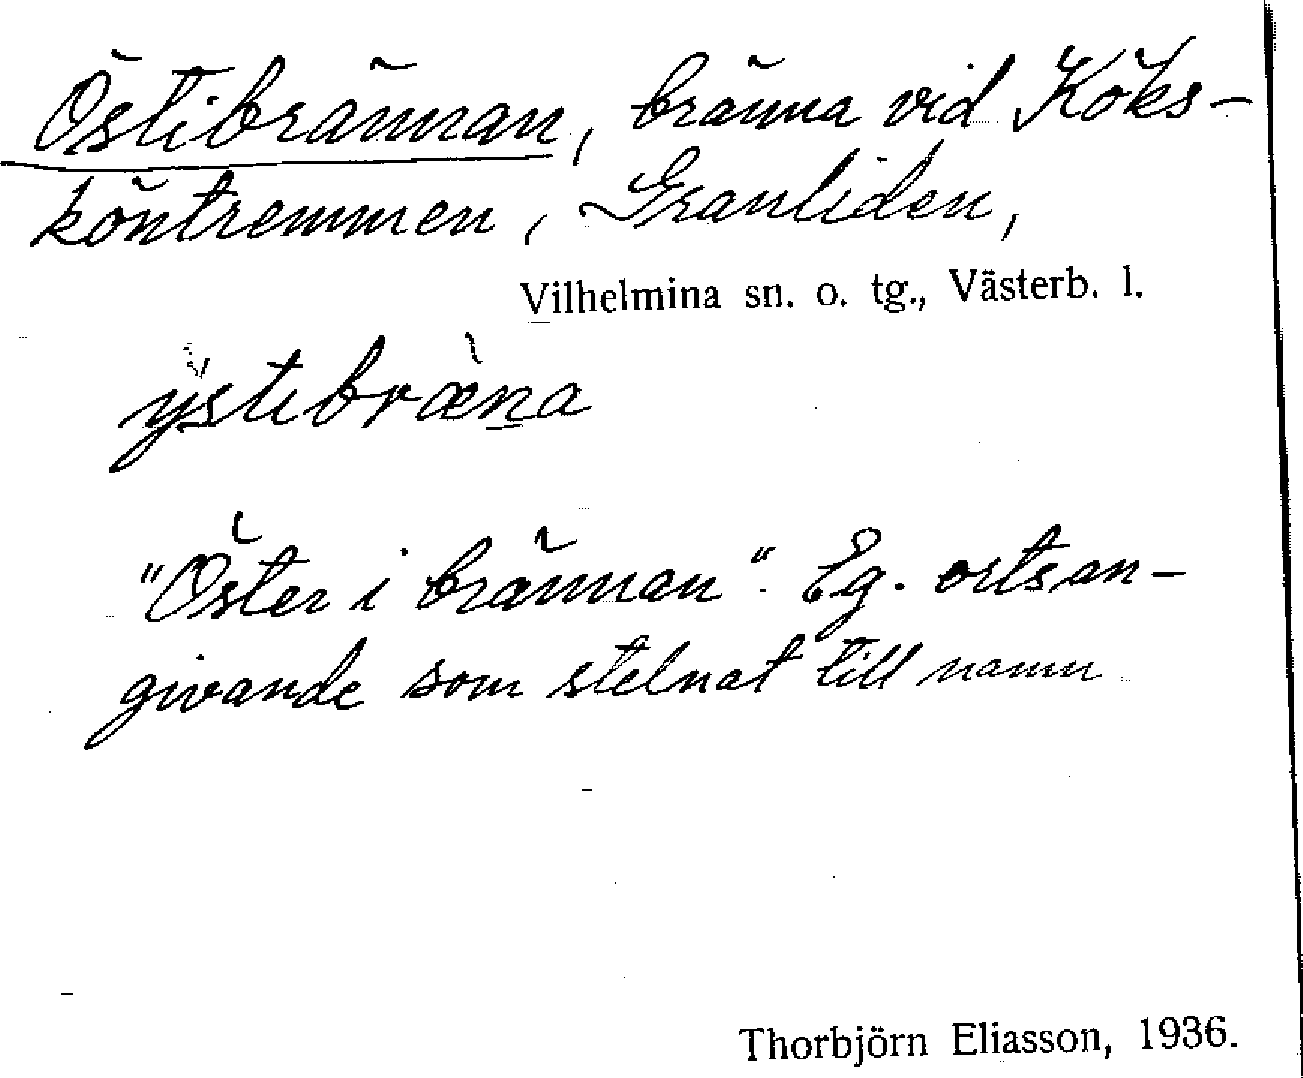 Östibrännan, bränna vid Köks-
köntremmen, Granliden,
Vilhelmina sn. o. tg., Västerb. l.
ÿstibræ̀n̲a
"Öster i brännan". Eg. ortsan-
givande som stelnat till namn
Thorbjörn Eliasson, 1936.